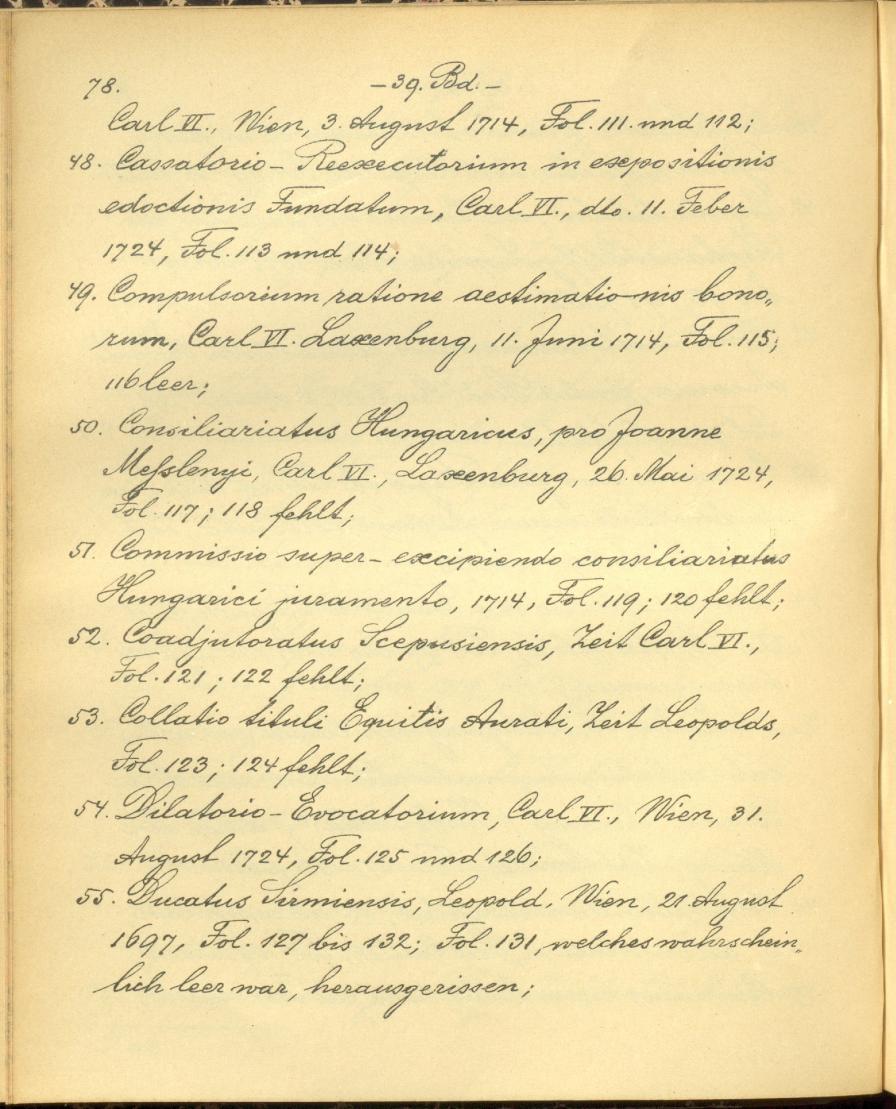 78. – 39. Bd. –
Carl VI., Wien, 3. August 1714, Fol. 111. und 112;
48. Cassatorio – Reexecutorium in expositionis
edoctionis Fundatum, Carl VI., dto. 11. Feber
1724, Fol. 113 und 114;
49. Compulsorium ratione aestimatio-nis bono„
rum, Carl VI. Laxenburg, 11. Juni 1714, Fol. 115;
116 leer;
50. Consiliariatus Hungaricus, pro Joanne
Meſslenyi, Carl VI., Laxenburg, 26. Mai 1724,
Fol. 117; 118 fehlt;
51. Commissio super – excipiendo consiliariatus
Hungarici juramento, 1714, Fol. 119; 120 fehlt;
52. Coadjutoratus Scepusiensis, Zeit Carl VI.,
Fol. 121; 122 fehlt;
53. Collatio tituli Equitis Aurati, Zeit Leopolds,
Fol. 123; 124 fehlt;
54. Dilatorio – Evocatorium, Carl VI., Wien, 31.
August 1724, Fol. 125 und 126;
55. Ducatus Sirmiensis, Leopold. Wien, 21. August
1697, Fol. 127 bis 132; Fol. 131, welches wahrschein„
lich leer war, herausgerissen;